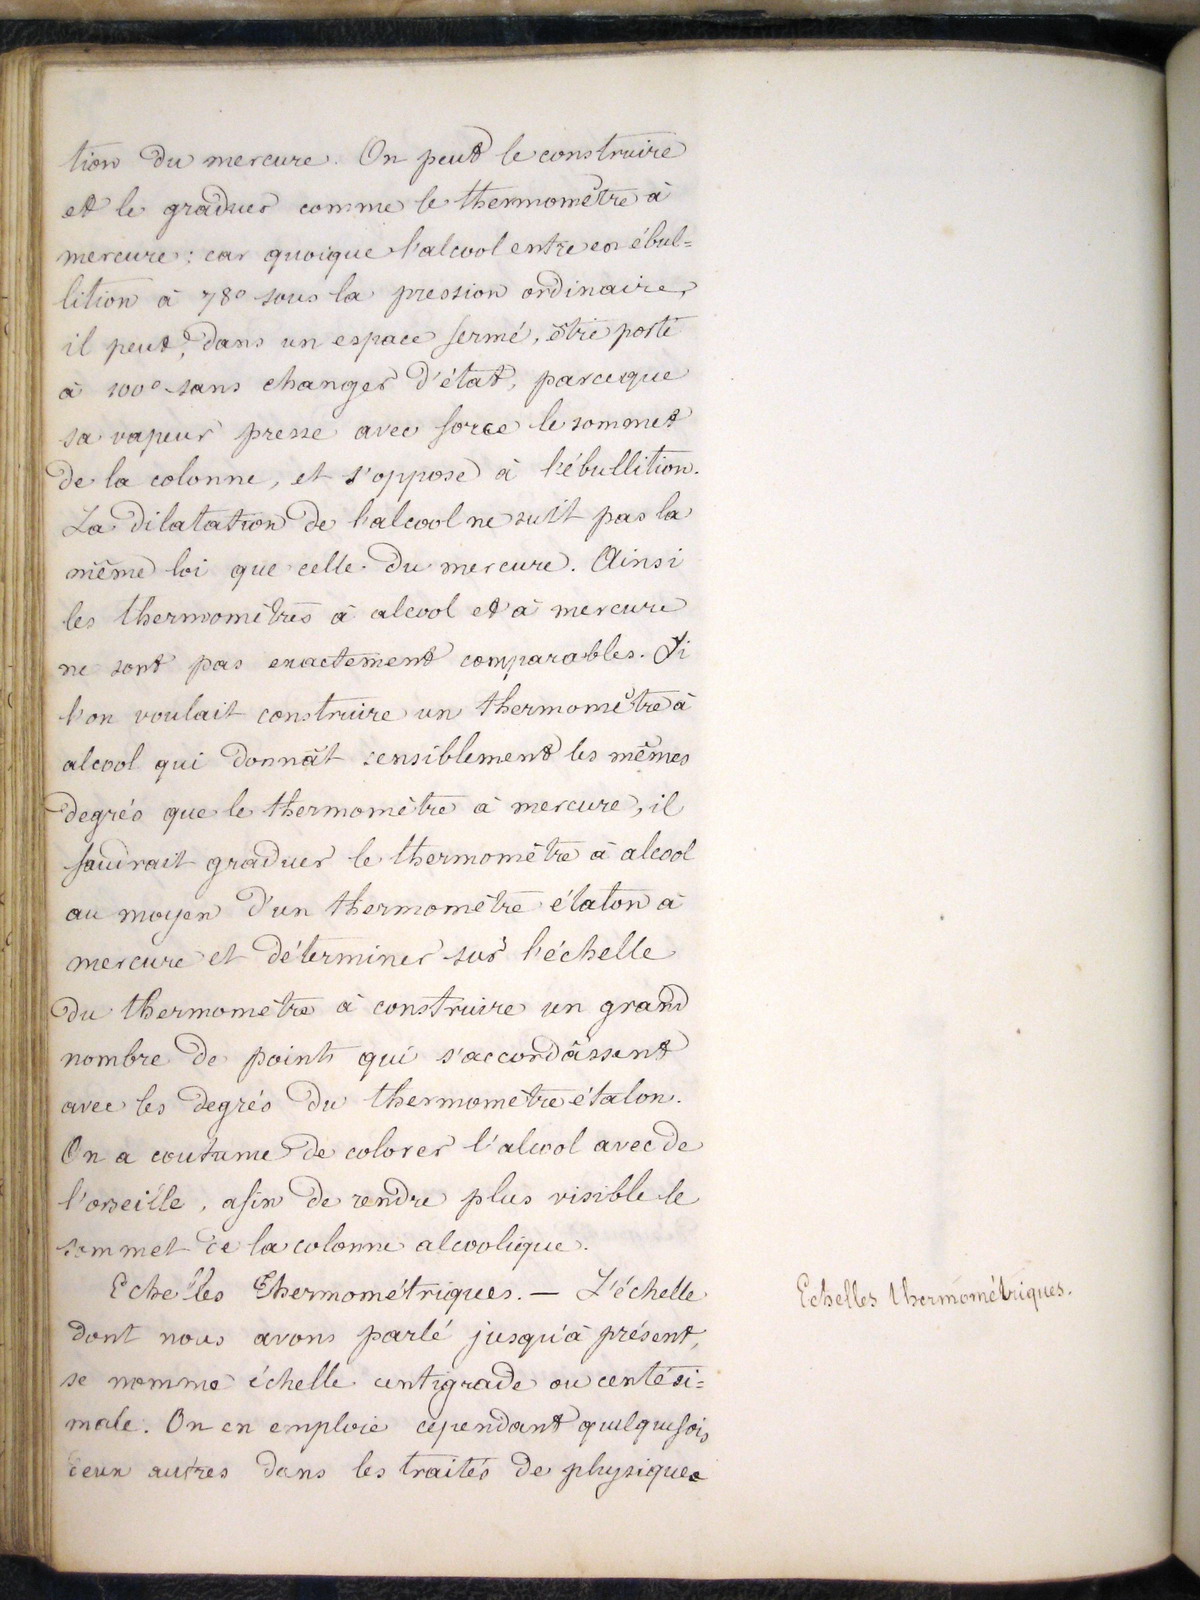 tion du mercure. On peut le construire
et le graduer comme le thermomètre à
mercure : car quoique l'alcool entre en ébul=
lition à 78° sous la pression ordinaire,
il peut, dans un espace fermé, être porté
à 100° sans changer d'état, parceque
sa vapeur presse avec force le sommet
de la colonne, et s'oppose à l'ébullition.
La dilatation de l'alcool ne suit pas la
même loi que celle du mercure. Ainsi
les thermomètres à alcool et à mercure
ne sont pas exactement comparables. Si
l'on voulait construire un thermomètre à
alcool qui donnât sensiblement les mêmes
degrés que le thermomètre à mercure, il
faudrait graduer le thermomètre à alcool
au moyen d'un thermomètre étalon à
mercure et déterminer sur l'échelle
du thermomètre à construire un grand
nombre de points qui s'accordâssent
avec les degrés du thermomètre étalon.
On a coutume de colorer l'alcool avec de
l'orseille, afin de rendre plus visible le
sommet de la colonne alcoolique.
Echelles Thermométriques. — L'échelle
dont nous avons parlé jusqu'à présent,
se nomme échelle centigrade ou centési=
male. On en emploie cependant quelquefois
deux autres dans les traités de physique
Echelles thermométriques.